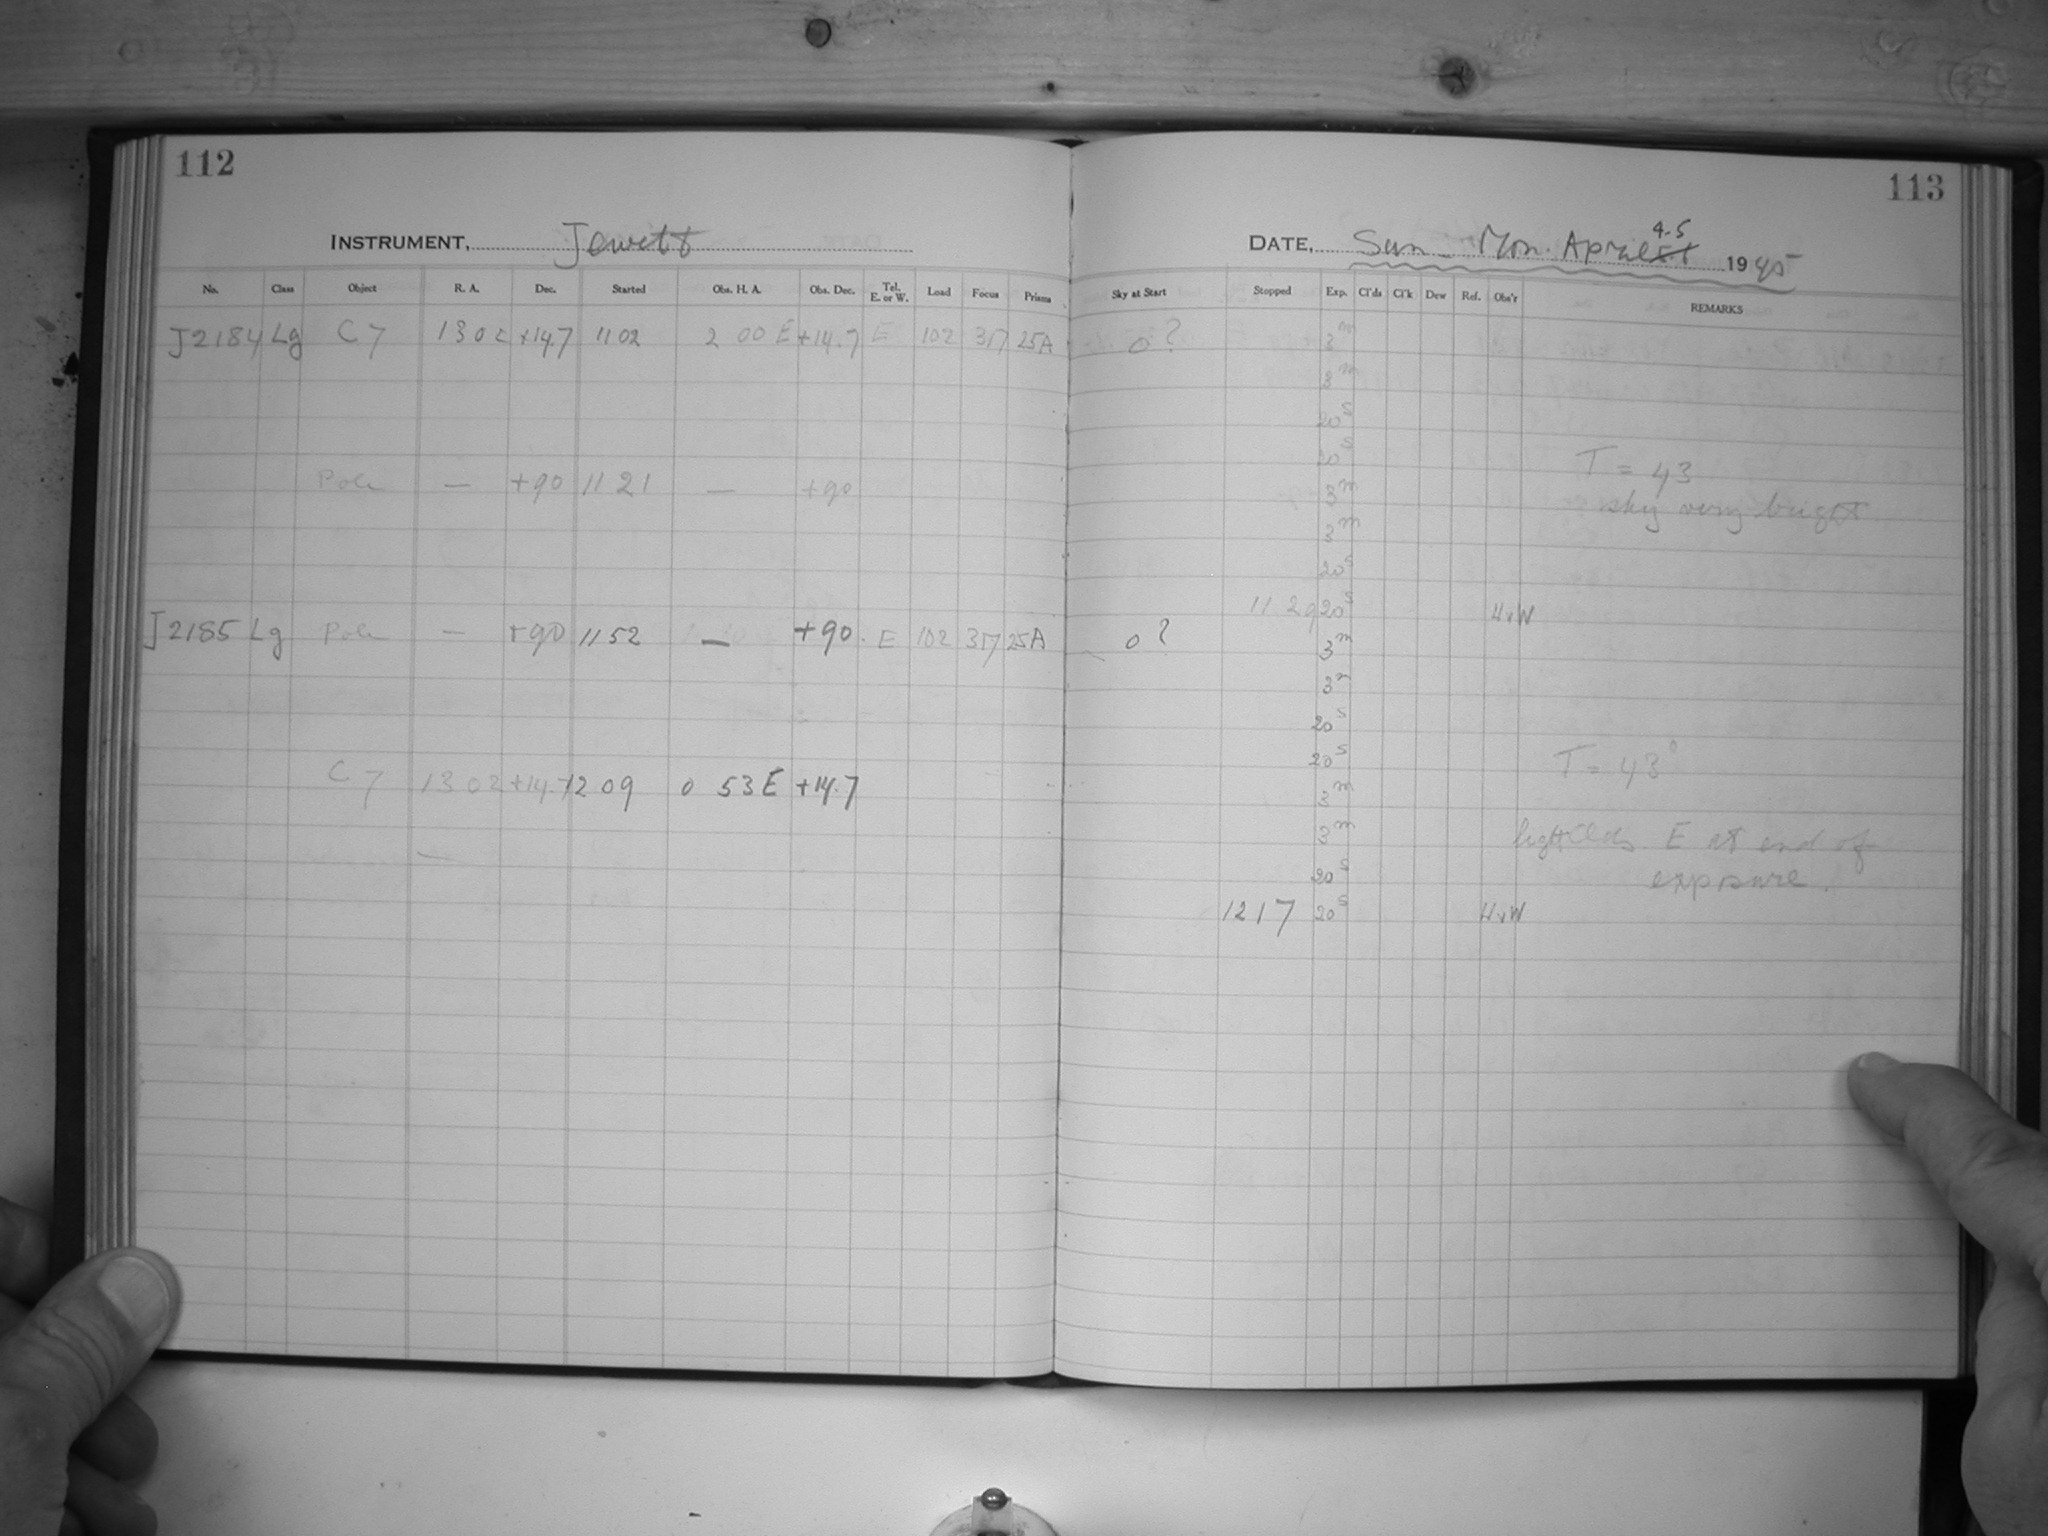 112
INSTRUMENT, Jewett
No. Class Object R. A. Dec. Started Obs. H. A. Obs. Dec. Tel. E. or W. Load Focus Prisms
J2184 Lg C7 1302 +14.7 1102 2 00 E +14.7 E 102 317 25A
Pole — +90 1121 — +90
J2185 Lg Pole — +90 1152 — +90 E 102 317 25A
C7 1302 +14.7 1209 0 53 E +14.7
113
DATE, Sun - Mon. April 4.5 1945
Sky at Start Stopped Exp. Cl'ds Cl'k Dew Ref. Obs'r REMARKS
0? 3m
3m
20s
20s T = 43
3m sky very bright
3m
20s
1129 20s HvW
0? 3m
3m
20s
20s T = 43°
3m
3m light Clds. E at end of
20s exposure.
1217 20s HvW